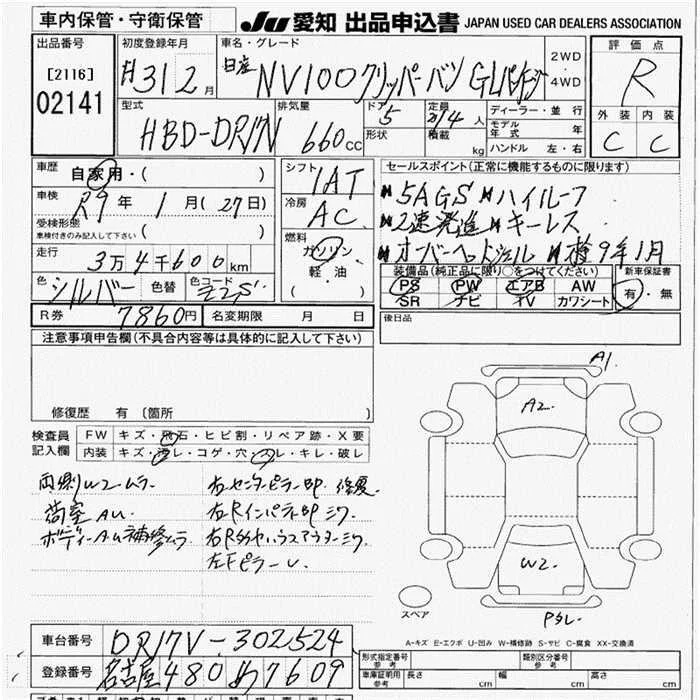 車内保管・守衛保管
JU 愛知 出品申込書 JAPAN USED CAR DEALERS ASSOCIATION
出品番号
[2116]
02141
初度登録年月
H31 2月
車名・グレード
日産 NV100クリッパーバン GLパッケージ
2WD
4WD
評価点
R
外装 内装
C C
型式
HBD-DR17V
排気量
660cc
ドア 5
形状
定員 2/4人
積載 kg
ディーラー・並行
モデル年式 年
ハンドル 左・右
車歴
自家用・( )
車検
R9年 1月(27日)
受検形態
車検付きのみ記入して下さい ( )
走行
3万4千600km
色
シルバー 色替
色コード
Z2S
シフト
1AT
冷房
AC
燃料
ガソリン
軽油
( )
セールスポイント(正常に機能するものに限ります)
5AGS ハイルーフ
2速発進 キーレス
オーバーヘッドシェル 検9年1月
装備品(純正品に限り○をつけてください)
PS PW エアB AW
SR ナビ TV カワシート
新車保証書
有・無
R券 7860円
名変期限 月 日
後日品
注意事項申告欄(不具合内容等は具体的に記入して下さい)
修復歴 有(箇所 )
検査員
記入欄
FW キズ・飛石・ヒビ割・リペア跡・X要
内装 キズ・汚レ・コゲ・穴・スレ・キレ・破レ
両側W2ムラ
荷室AU
ボディーAU補修ムラ
右センターピラーBP 修復
右Rインパネ部ミワ
左FピラーU
A1
A2
W2
スペア
A-キズ E-エクボ U-凹み W-補修跡 S-サビ C-腐食 XX-交換済
車台番号 DR17V-302524
登録番号 名古屋 480 め 7609
形式指定番号
参考
類別区分番号
参考
車庫証明用
参考
長さ cm 幅 cm 高さ cm